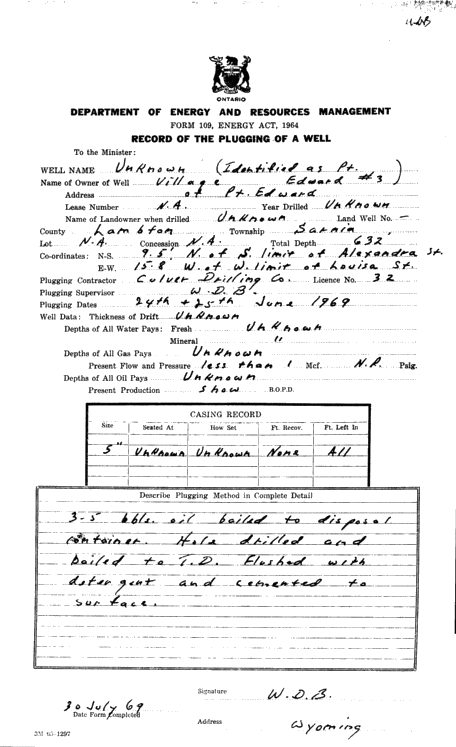 WDB
ONTARIO
DEPARTMENT OF ENERGY AND RESOURCES MANAGEMENT
FORM 109, ENERGY ACT, 1964
RECORD OF THE PLUGGING OF A WELL
To the Minister:
WELL NAME Unknown (Identified as Pt. Edward #3)
Name of Owner of Well Village
Address of Pt. Edward
Lease Number N.A. Year Drilled Unknown
Name of Landowner when drilled Unknown Land Well No. —
County Lambton Township Sarnia
Lot N.A. Concession N.A. Total Depth 632
Co-ordinates: N-S. 9.5' N. of S. limit of Alexandra St.
E-W. 15.8 W. of W. limit of Louisa St.
Plugging Contractor Culver Drilling Co. Licence No. 32
Plugging Supervisor W.D.B.
Plugging Dates 24th + 25th June 1969
Well Data: Thickness of Drift Unknown
Depths of All Water Pays: Fresh Unknown
Mineral "
Depths of All Gas Pays Unknown
Present Flow and Pressure less than 1 Mcf. N.R. Psig.
Depths of All Oil Pays Unknown
Present Production Show B.O.P.D.
CASING RECORD
Size Seated At How Set Ft. Recov. Ft. Left In
5" Unknown Unknown None All
Describe Plugging Method in Complete Detail
3-5 bbls. oil bailed to disposal
container. Hole drilled and
bailed to T.D. Flushed with
detergent and cemented to
surface.
Signature W.D.B.
30 July 69
Date Form Completed
Address Wyoming
3M 65-1297